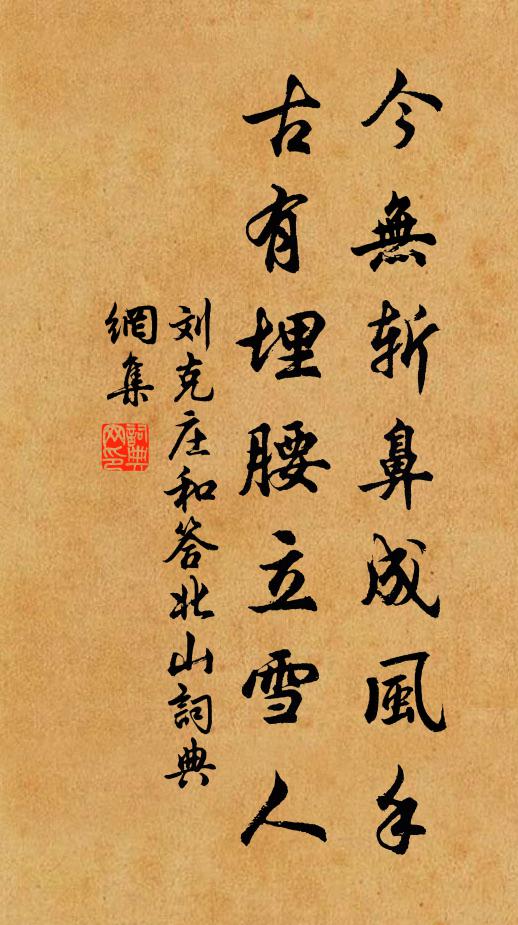 今無斲鼻成風手
古有埋腰立雪人
刘克庄和答北山詞典
網集
詞典
网印